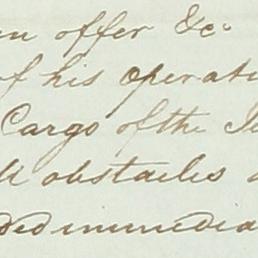 offer &c
of his operati
Cargo of the
obstacles
ded immedia